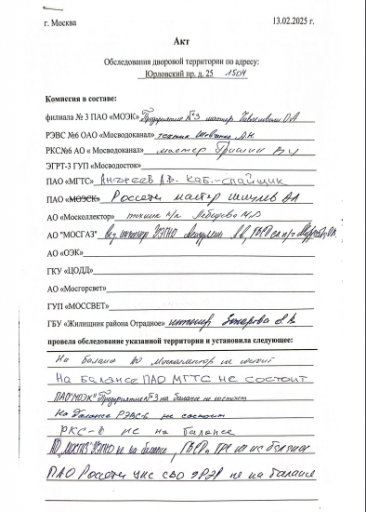 г. Москва 13.02.2025 г.
Акт
Обследования дворовой территории по адресу:
Юрловский пр, д. 25 1504
Комиссия в составе:
филиала № 3 ПАО «МОЭК» Предприятие №3 мастер
РЭВС №6 ОАО «Мосводоканал» техник
РКС№6 АО « Мосводоканал» мастер Гришин В.У
ЭГРТ-3 ГУП «Мосводосток»
ПАО «МГТС» Андреев А.В. каб.-спайщик
ПАО «МОЭСК» Россети мастер
АО «Москоллектор» техник
АО "МОСГАЗ" инженер УЭГНО
АО «ОЭК»
ГКУ «ЦОДД»
АО «Мосгорсвет»
ГУП «МОССВЕТ»
ГБУ «Жилищник района Отрадное» инженер Захарова
провела обследование указанной территории и установила следующее:
На балансе АО Москоллектор не состоит
На балансе ПАО МГТС не состоит
ПАО "МОЭК" Предприятие №3 на балансе не состоит
На балансе РЭВС-6 не состоит
РКС-6 не на балансе
не на балансе,
ПАО Россети не на балансе